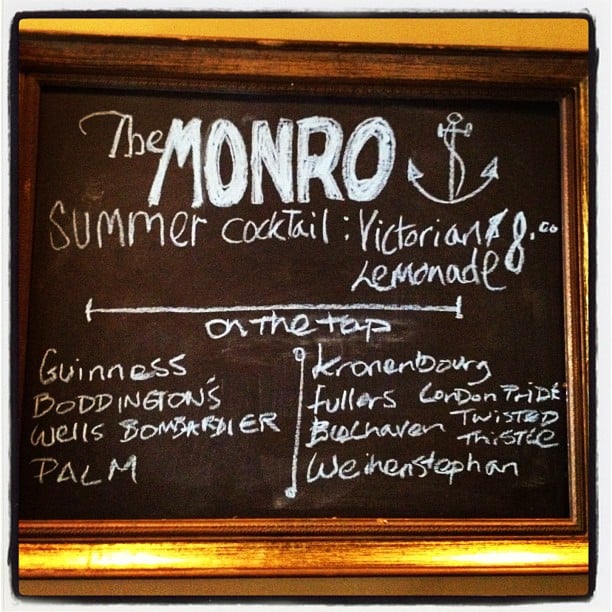 The MONRO
Summer cocktail: Victorian $8.00
Lemonade
on the tap
Guinness
BODDINGTON'S
Wells BOMBARDIER
PALM
Kronenbourg
Fullers LONDON PRIDE
Belhaven TWISTED
THISTLE
Weihenstephan